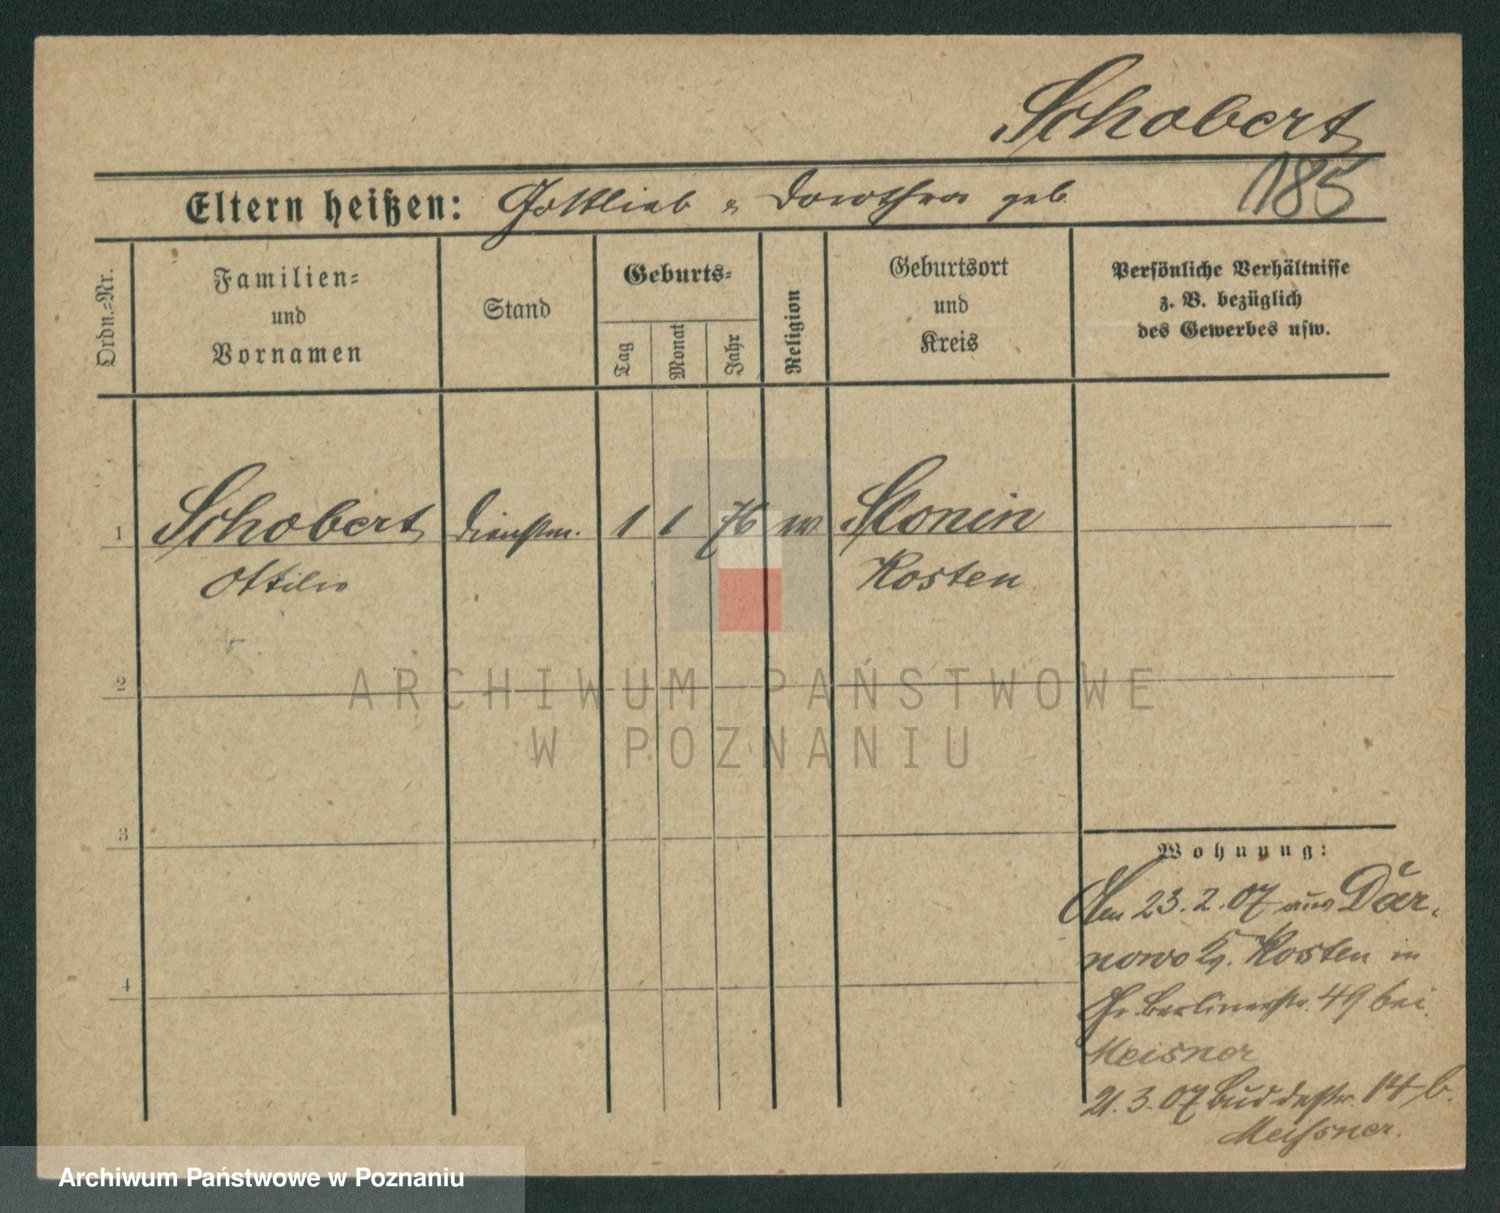 Schobert
185
Eltern heißen: Gottlieb u Dorothea geb.
Ordn.-Nr.
Familien-
und
Vornamen
Stand
Geburts-
Tag
Monat
Jahr
Religion
Geburtsort
und
Kreis
Persönliche Verhältnisse
z. B. bezüglich
des Gewerbes usw.
1 Schobert Dienstm. 1 1 76 Slonin
Ottilie Kosten
2
3
4
Wohnung:
Am 23.2.07 aus Dar-
nowo Kr. Kosten in
Gr. Berlinerstr. 49 bei
Meisner
21.3.07 Buddestr. 14 b.
Meissner.
ARCHIWUM PAŃSTWOWE
W POZNANIU
Archiwum Państwowe w Poznaniu